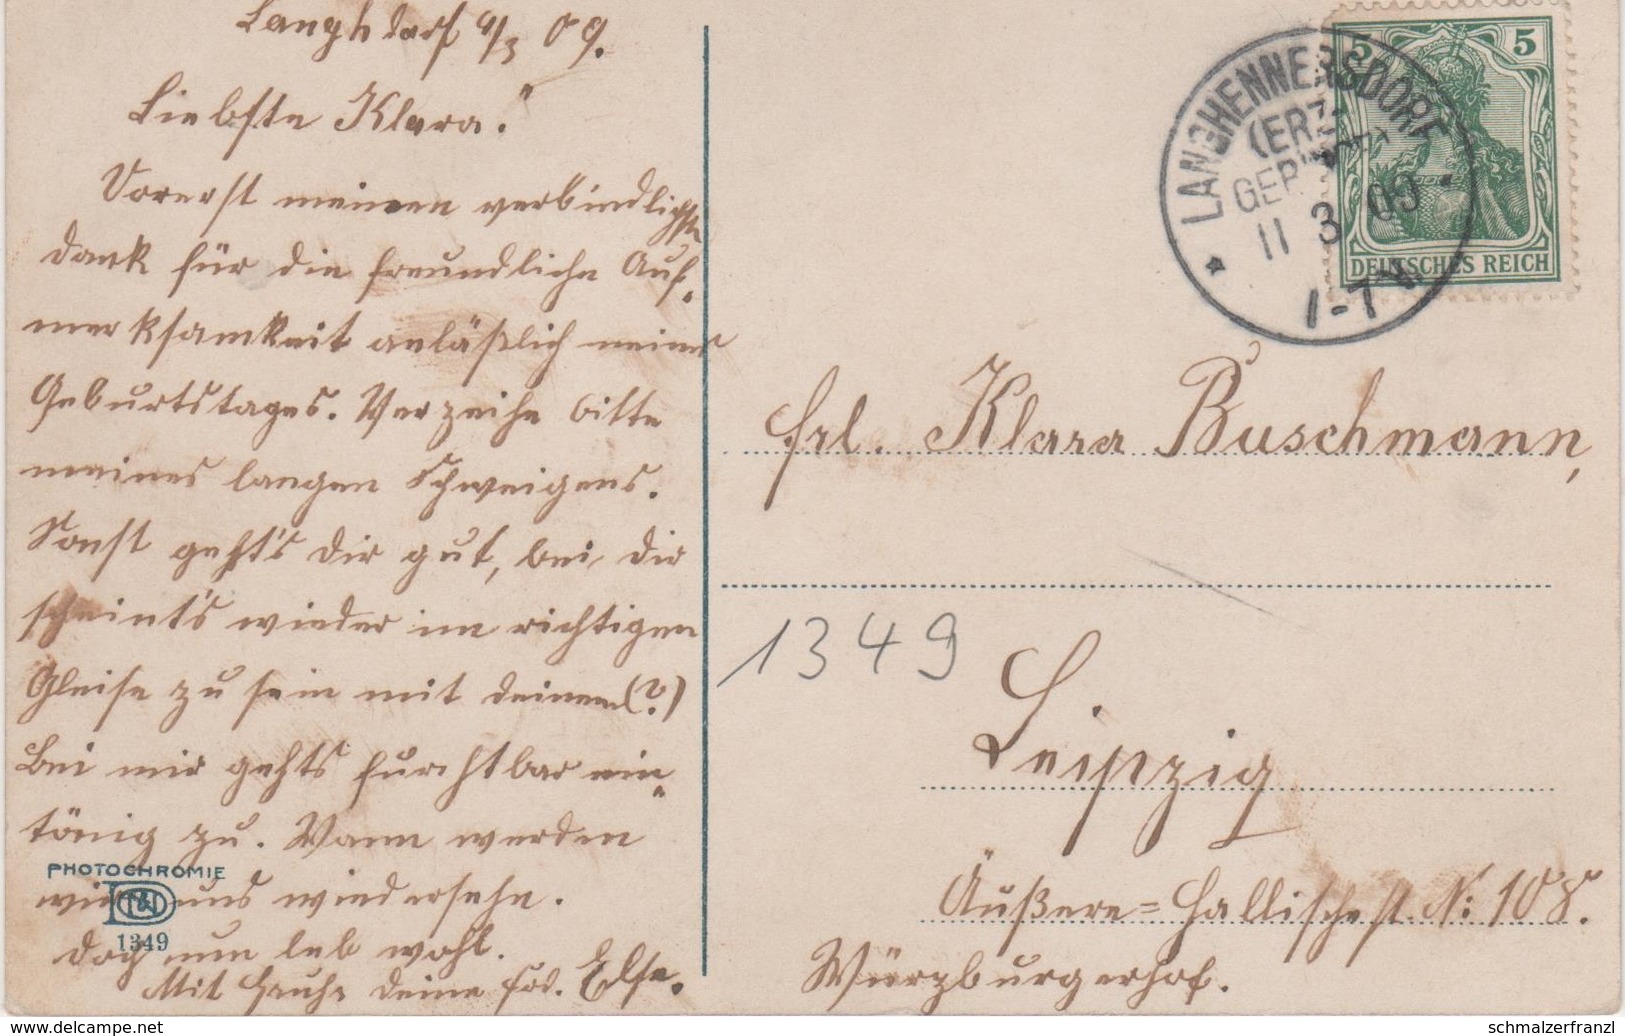 Langhdorf 9/3 09.
Liebste Klara!
Vorerst meinen verbindlichsten
Dank für die freundliche Auf-
merksamkeit anläßlich meines
Geburtstages. Verzeihe bitte
meines langen Schweigens.
Sonst geht's dir gut, bei dir
scheint's wieder im richtigen
Gleise zu sein mit deinem (?)
Bei mir gehts furchtbar ein-
tönig zu. Wann werden
wir uns wiedersehn.
Doch nun leb wohl.
Mit deine Else.
PHOTOCHROMIE
1349
LANGHENNERSDORF
(ERZ
11 3 09
1-7 N
5 5
DEUTSCHES REICH
Frl. Klara Buschmann,
1349
Leipzig
Äußere=Hallischest. No: 108.
Würzburgerhof.
© www.delcampe.net
schmalzerfranzl